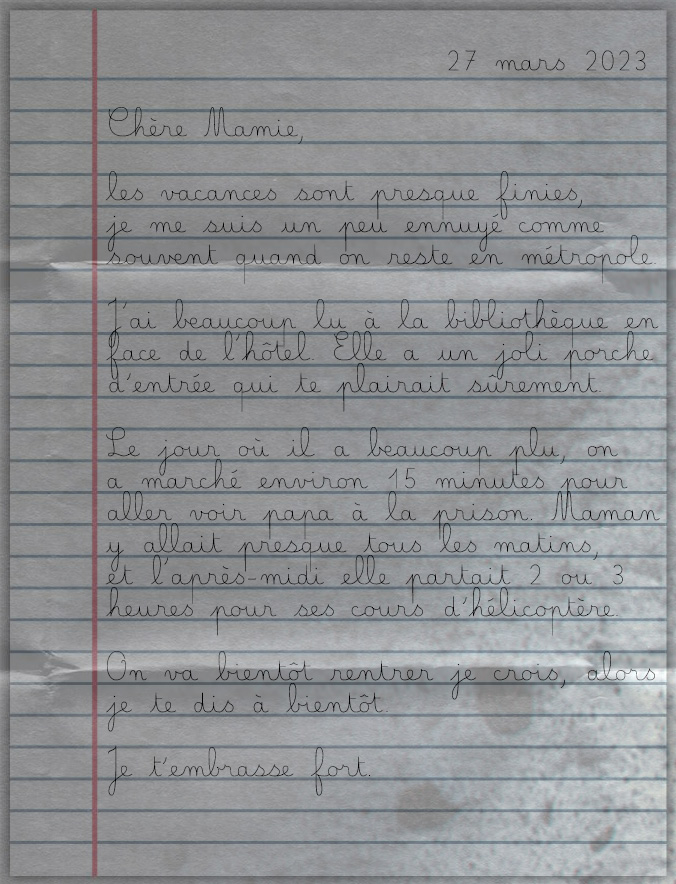 27 mars 2023
Chère Mamie,
les vacances sont presque finies,
je me suis un peu ennuyé comme
souvent quand on reste en métropole.
J'ai beaucoup lu à la bibliothèque en
face de l'hôtel. Elle a un joli porche
d'entrée qui te plairait sûrement.
Le jour où il a beaucoup plu, on
a marché environ 15 minutes pour
aller voir papa à la prison. Maman
y allait presque tous les matins,
et l'après-midi elle partait 2 ou 3
heures pour ses cours d'hélicoptère.
On va bientôt rentrer je crois, alors
je te dis à bientôt.
Je t'embrasse fort.